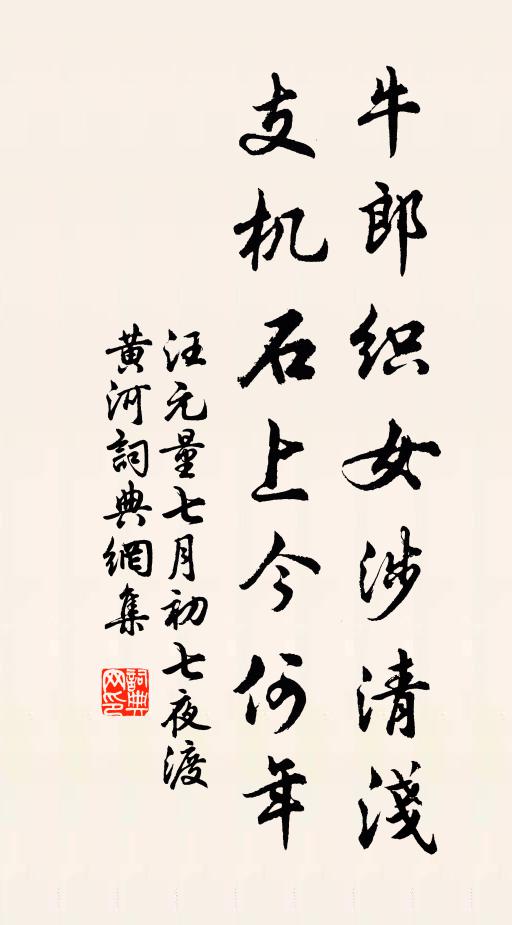 牛郎织女涉清淺
支机石上今何年
汪元量七月初七夜渡
黄河詞典網集
詞典
网印